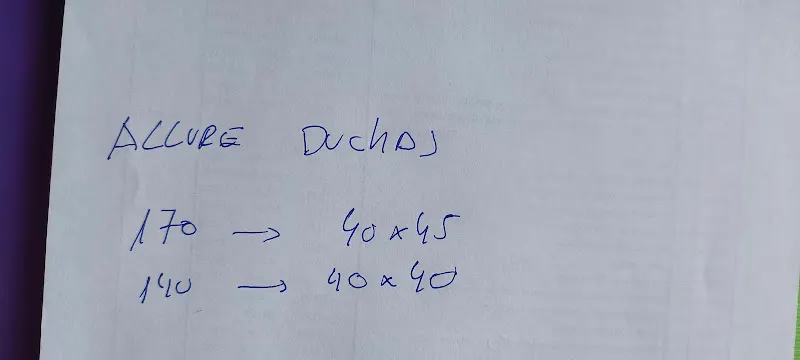 ALLURE DUCHAS
170 → 40x45
140 → 40x40